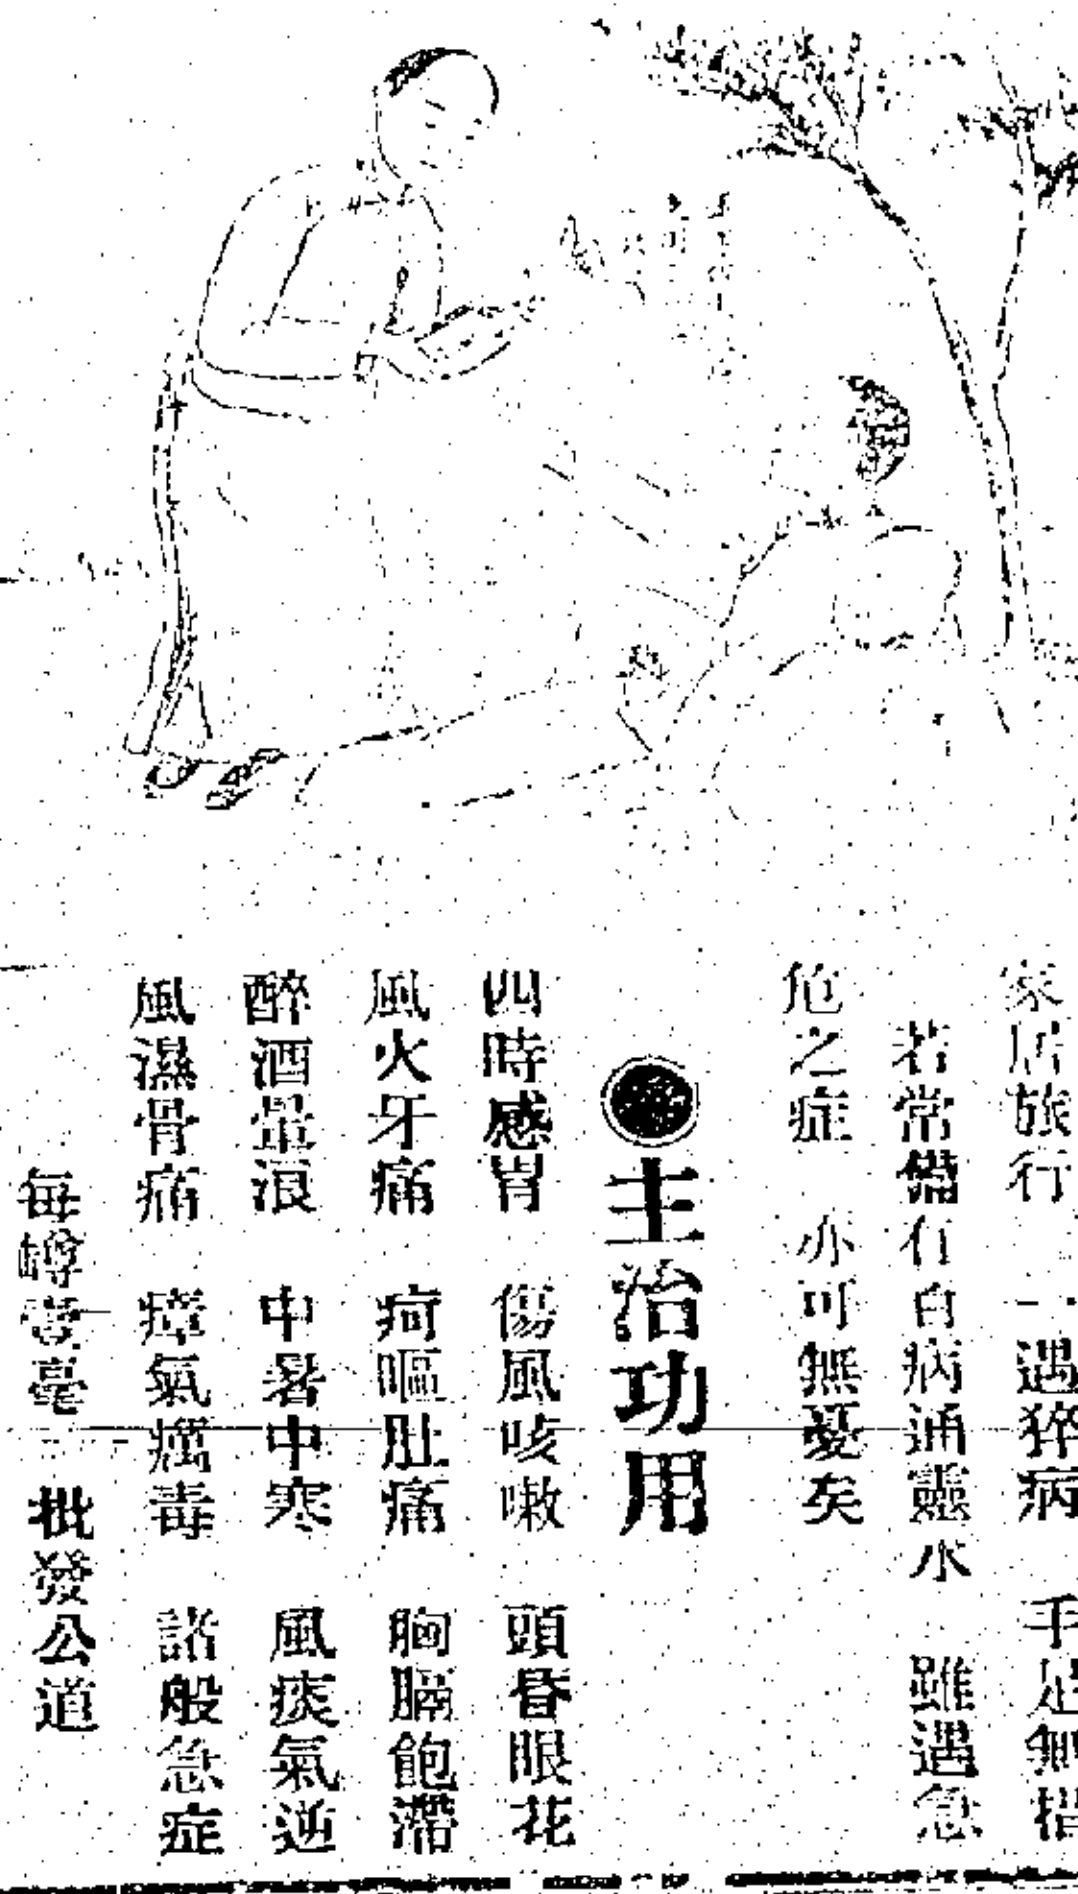 家居旅行　一遇猝病　手足無措
若常備有白病通靈水　雖遇急
危之症　亦可無憂矣
主治功用
四時感冒　傷風咳嗽　頭昏眼花
風火牙痛　疴嘔肚痛　胸膈飽滯
醉酒暈浪　中暑中寒　風痰氣逆
風濕骨痛　瘴氣癘毒　諸般急症
每罇壹毫　批發公道